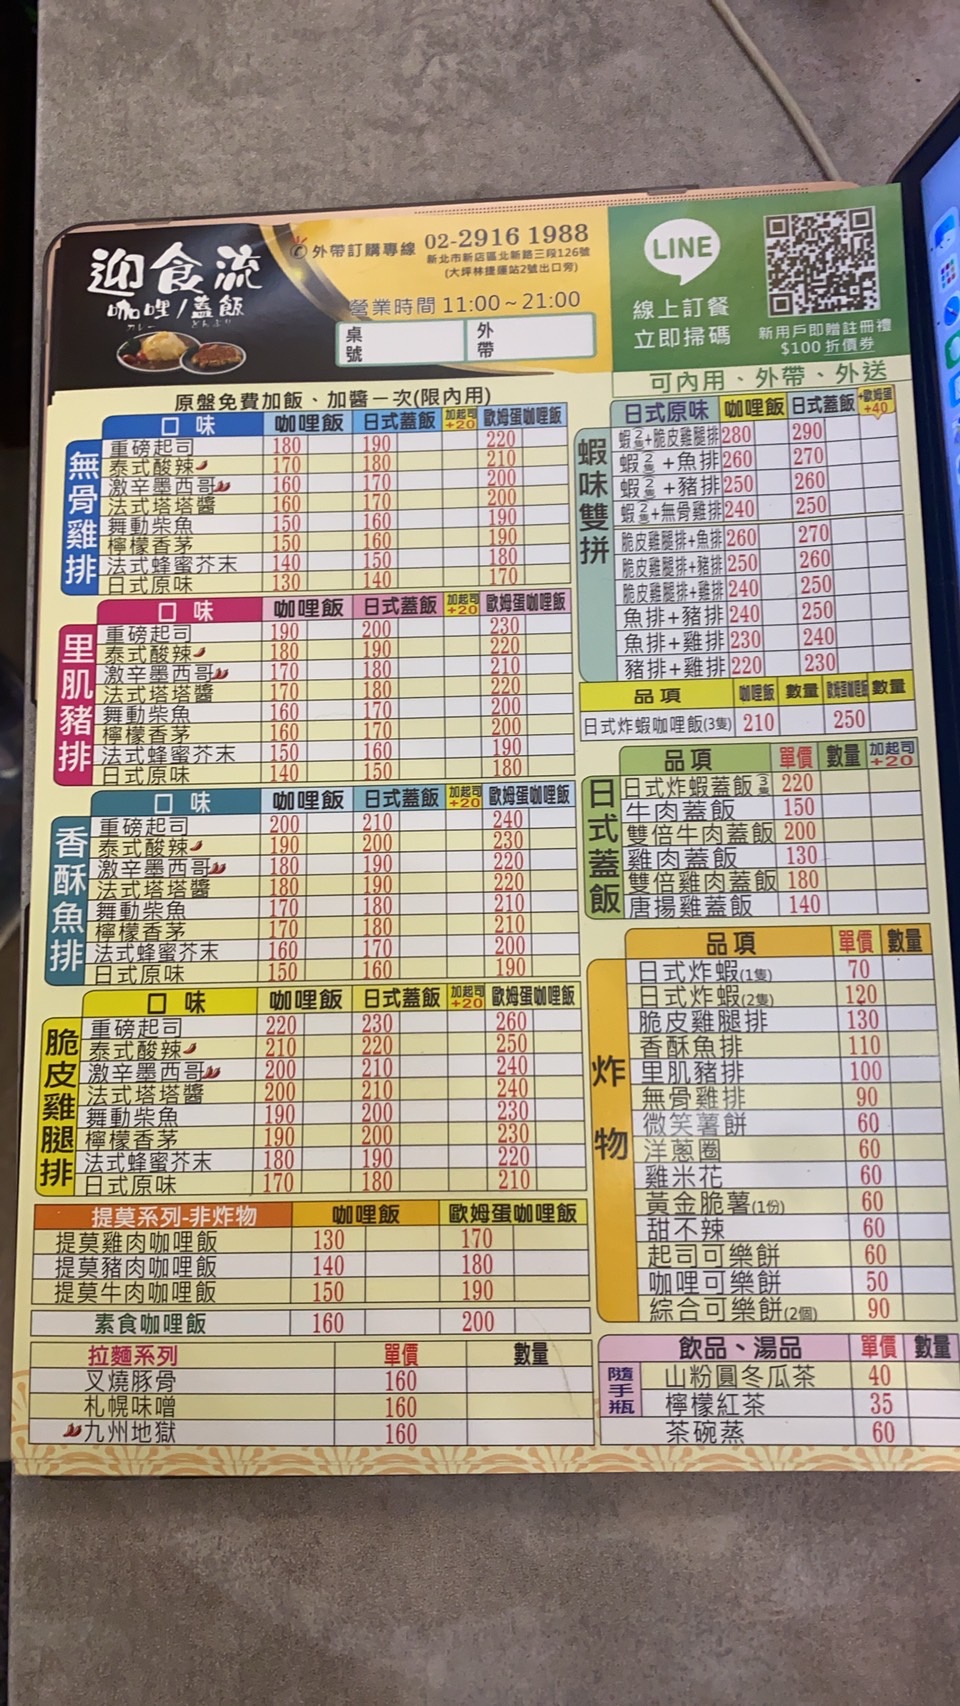 迎食流
咖哩/蓋飯
カレー どんぶり
外帶訂購專線 02-2916 1988
新北市新店區北新路三段126號
(大坪林捷運站2號出口旁)
營業時間 11:00~21:00
桌號 外帶
LINE
線上訂餐
立即掃碼
新用戶即贈註冊禮
$100 折價券
可內用、外帶、外送
原盤免費加飯、加醬一次(限內用)
無骨雞排
口味 咖哩飯 日式蓋飯 加起司+20 歐姆蛋咖哩飯
重磅起司 180 190 220
泰式酸辣 170 180 210
激辛墨西哥 160 170 200
法式塔塔醬 160 170 200
舞動柴魚 150 160 190
檸檬香茅 150 160 190
法式蜂蜜芥末 140 150 180
日式原味 130 140 170
里肌豬排
口味 咖哩飯 日式蓋飯 加起司+20 歐姆蛋咖哩飯
重磅起司 190 200 230
泰式酸辣 180 190 220
激辛墨西哥 170 180 210
法式塔塔醬 170 180 220
舞動柴魚 160 170 200
檸檬香茅 160 170 200
法式蜂蜜芥末 150 160 190
日式原味 140 150 180
香酥魚排
口味 咖哩飯 日式蓋飯 加起司+20 歐姆蛋咖哩飯
重磅起司 200 210 240
泰式酸辣 190 200 230
激辛墨西哥 180 190 220
法式塔塔醬 180 190 220
舞動柴魚 170 180 210
檸檬香茅 170 180 210
法式蜂蜜芥末 160 170 200
日式原味 150 160 190
脆皮雞腿排
口味 咖哩飯 日式蓋飯 加起司+20 歐姆蛋咖哩飯
重磅起司 220 230 260
泰式酸辣 210 220 250
激辛墨西哥 200 210 240
法式塔塔醬 200 210 240
舞動柴魚 190 200 230
檸檬香茅 190 200 230
法式蜂蜜芥末 180 190 220
日式原味 170 180 210
提莫系列-非炸物 咖哩飯 歐姆蛋咖哩飯
提莫雞肉咖哩飯 130 170
提莫豬肉咖哩飯 140 180
提莫牛肉咖哩飯 150 190
素食咖哩飯 160 200
拉麵系列 單價 數量
叉燒豚骨 160
札幌味噌 160
九州地獄 160
蝦味雙拼
日式原味 咖哩飯 日式蓋飯 +歐姆蛋+40
蝦2隻+脆皮雞腿排 280 290
蝦2隻+魚排 260 270
蝦2隻+豬排 250 260
蝦2隻+無骨雞排 240 250
脆皮雞腿排+魚排 260 270
脆皮雞腿排+豬排 250 260
脆皮雞腿排+雞排 240 250
魚排+豬排 240 250
魚排+雞排 230 240
豬排+雞排 220 230
品項 咖哩飯 數量 歐姆蛋咖哩飯 數量
日式炸蝦咖哩飯(3隻) 210 250
日式蓋飯
品項 單價 數量 加起司+20
日式炸蝦蓋飯3隻 220
牛肉蓋飯 150
雙倍牛肉蓋飯 200
雞肉蓋飯 130
雙倍雞肉蓋飯 180
唐揚雞蓋飯 140
炸物
品項 單價 數量
日式炸蝦(1隻) 70
日式炸蝦(2隻) 120
脆皮雞腿排 130
香酥魚排 110
里肌豬排 100
無骨雞排 90
微笑薯餅 60
洋蔥圈 60
雞米花 60
黃金脆薯(1份) 60
甜不辣 60
起司可樂餅 60
咖哩可樂餅 50
綜合可樂餅(2個) 90
飲品、湯品 單價 數量
隨手瓶
山粉圓冬瓜茶 40
檸檬紅茶 35
茶碗蒸 60